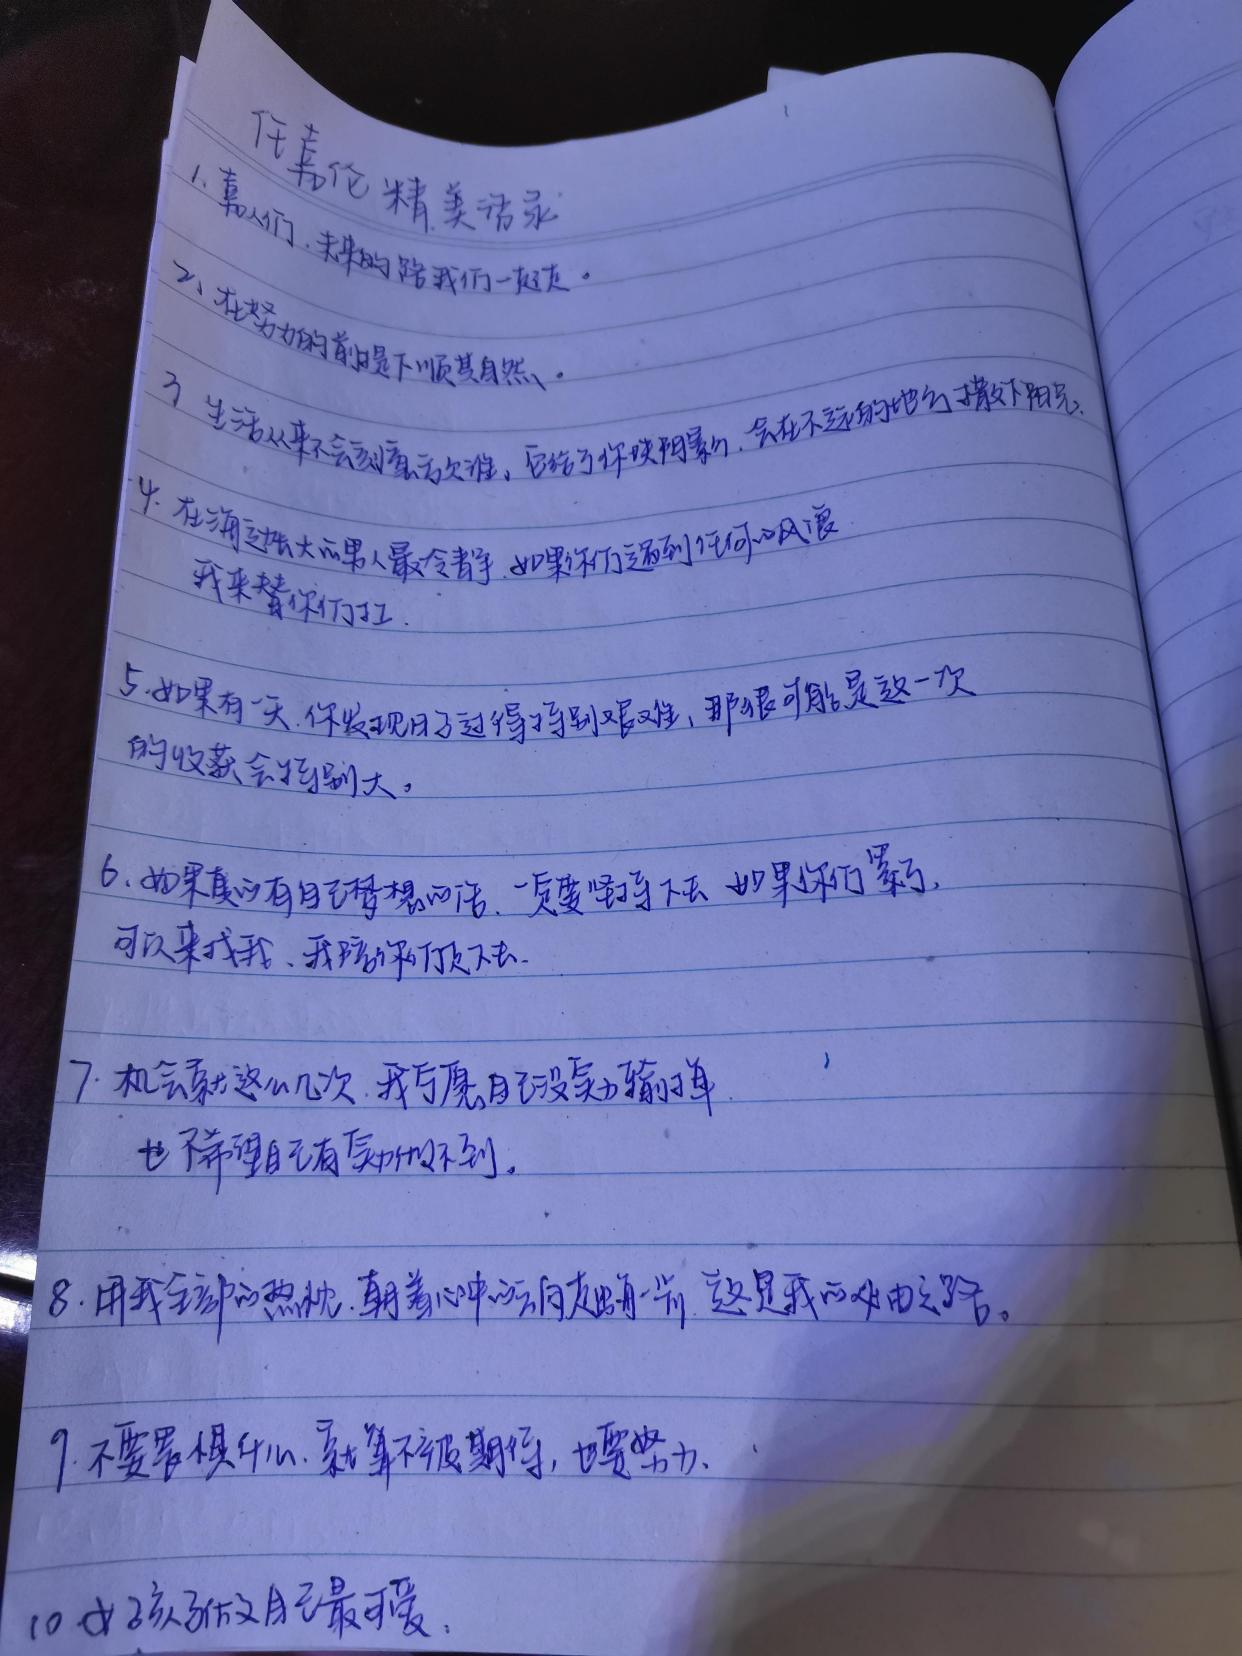 任嘉伦精美语录
1、嘉人们、未来的路我们一起走。
2、在努力的前提下顺其自然、。
3 生活从来不会刻意为难谁、它给了你一块阴影、会在不远的地方撒下阳光、
4、在海边长大的男人最冷静、如果你们遇到任何的风浪
我来替你们扛.
5、如果有一天、你发现日子过得特别艰难、那很可能是这一次
的收获会特别大。
6、如果真的有自己梦想的话、一定要坚持下去 如果你们累了、
可以来找我、我陪你们顶下去.
7、机会就这么几次、我宁愿自己没实力输掉
也不希望自己有实力做不到。
8、用我全部的热忱、朝着心中的方向走出每一步 这是我的自由之路。
9、不要畏惧什么、就算不被期待,也要努力、
10 女孩子做自己最可爱.